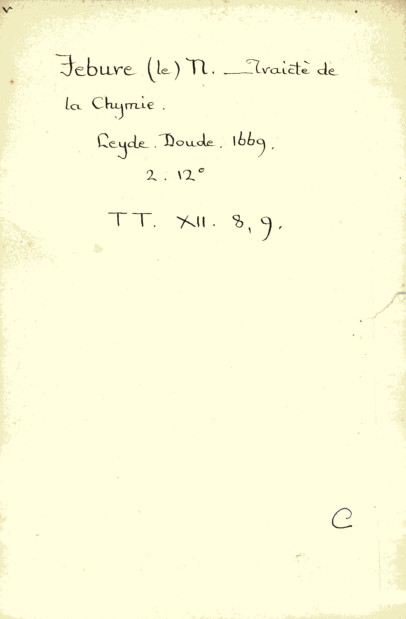 Febure (le) N. — Traictè de
la Chymie.
Leyde. Doude. 1669.
2. 12°
TT. XII. 8, 9.
C